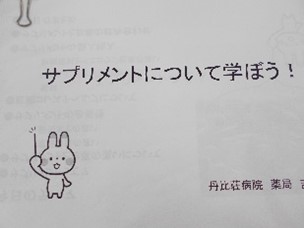 サプリメントについて学ぼう！
丹比荘病院 薬局